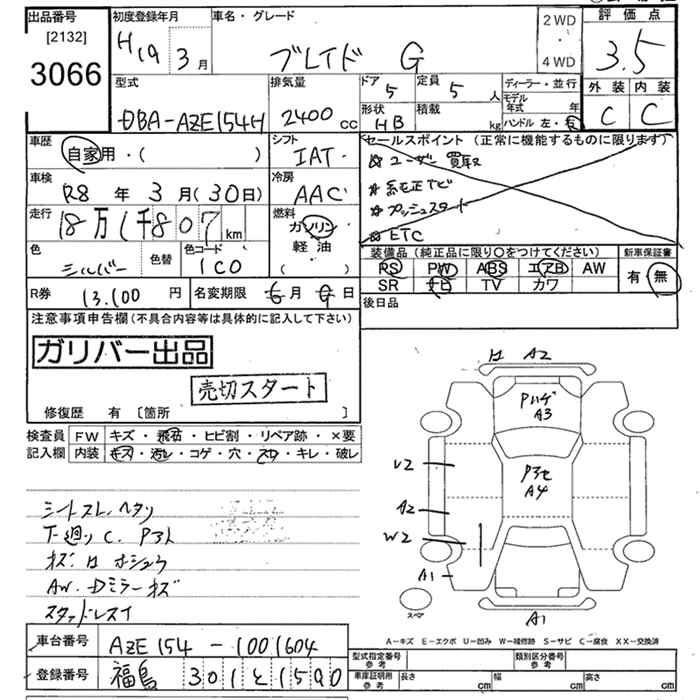 出品番号 初度登録年月 車名・グレード 2WD 評価点
[2132] H19 3月 ブレイド G ・ 3.5
3066 4WD
型式 排気量 ドア 定員 ディーラー・並行 外装 内装
DBA-AZE154H 2400cc 5 5人 モデル年式 年 C C
形状 積載 ハンドル 左・右
HB kg
車歴 シフト セールスポイント (正常に機能するものに限ります)
自家用・( ) IAT ☆ユーザー買取
車検 冷房 ★純正ナビ
R8年 3月(30日) AAC ★プッシュスタート
走行 燃料 ★ETC
18万1千807km ガソリン
軽油
( )
色 色替 色コード 装備品 (純正品に限り○をつけてください) 新車保証書
シルバー 1C0 PS PW ABS エアB AW 有・無
SR ナビ TV カワ
R券 13,100円 名変期限 月 日 後日品
注意事項申告欄(不具合内容等は具体的に記入して下さい)
ガリバー出品
売切スタート
修復歴 有 [箇所 ]
検査員 FW キズ・飛石・ヒビ割・リペア跡・×要
記入欄 内装 キズ・汚レ・コゲ・穴・スレ・キレ・破レ
シートスレ、ヘタリ
下廻り C. Pスト
キズ
AW. Dミラーキズ
スタッドレスイ
A2
Pハゲ
A3
U2
Pヌセ
A4
A2
W2
A1
スペア
A1
A-キズ E-エクボ U-凹み W-補修跡 S-サビ C-腐食 XX-交換済
車台番号 AZE154-1001604
登録番号 福島 301 と 1590
型式指定番号 参考 類別区分番号 参考
車庫証明用 参考 長さ cm 幅 cm 高さ cm